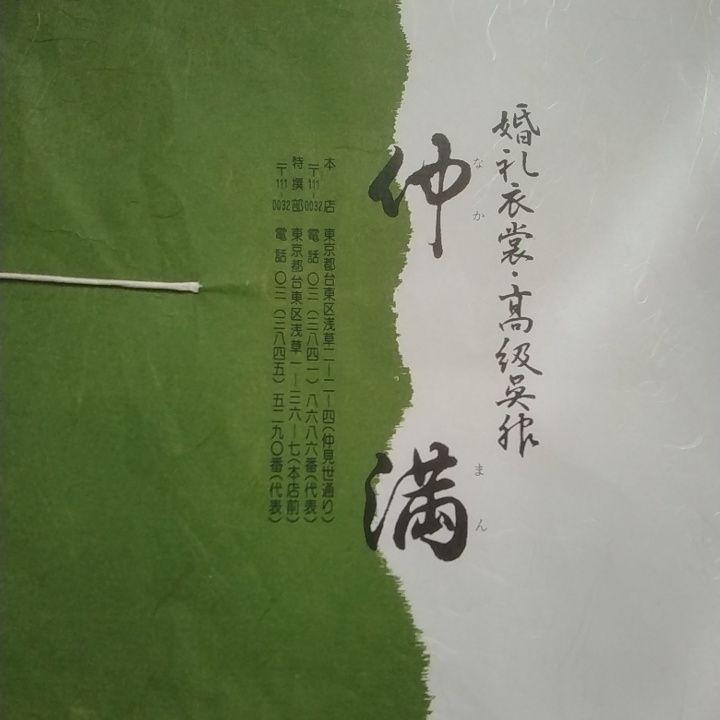 婚礼衣裳・高級呉服
なかまん
仲満
本店 東京都台東区浅草二ー二ー四(仲見世通り)
〒111-0032 電話 〇三(三八四一)八六八六番(代表)
特撰部 東京都台東区浅草一ー三六ー七(本店前)
〒111-0032 電話 〇三(三八四五)五二九〇番(代表)